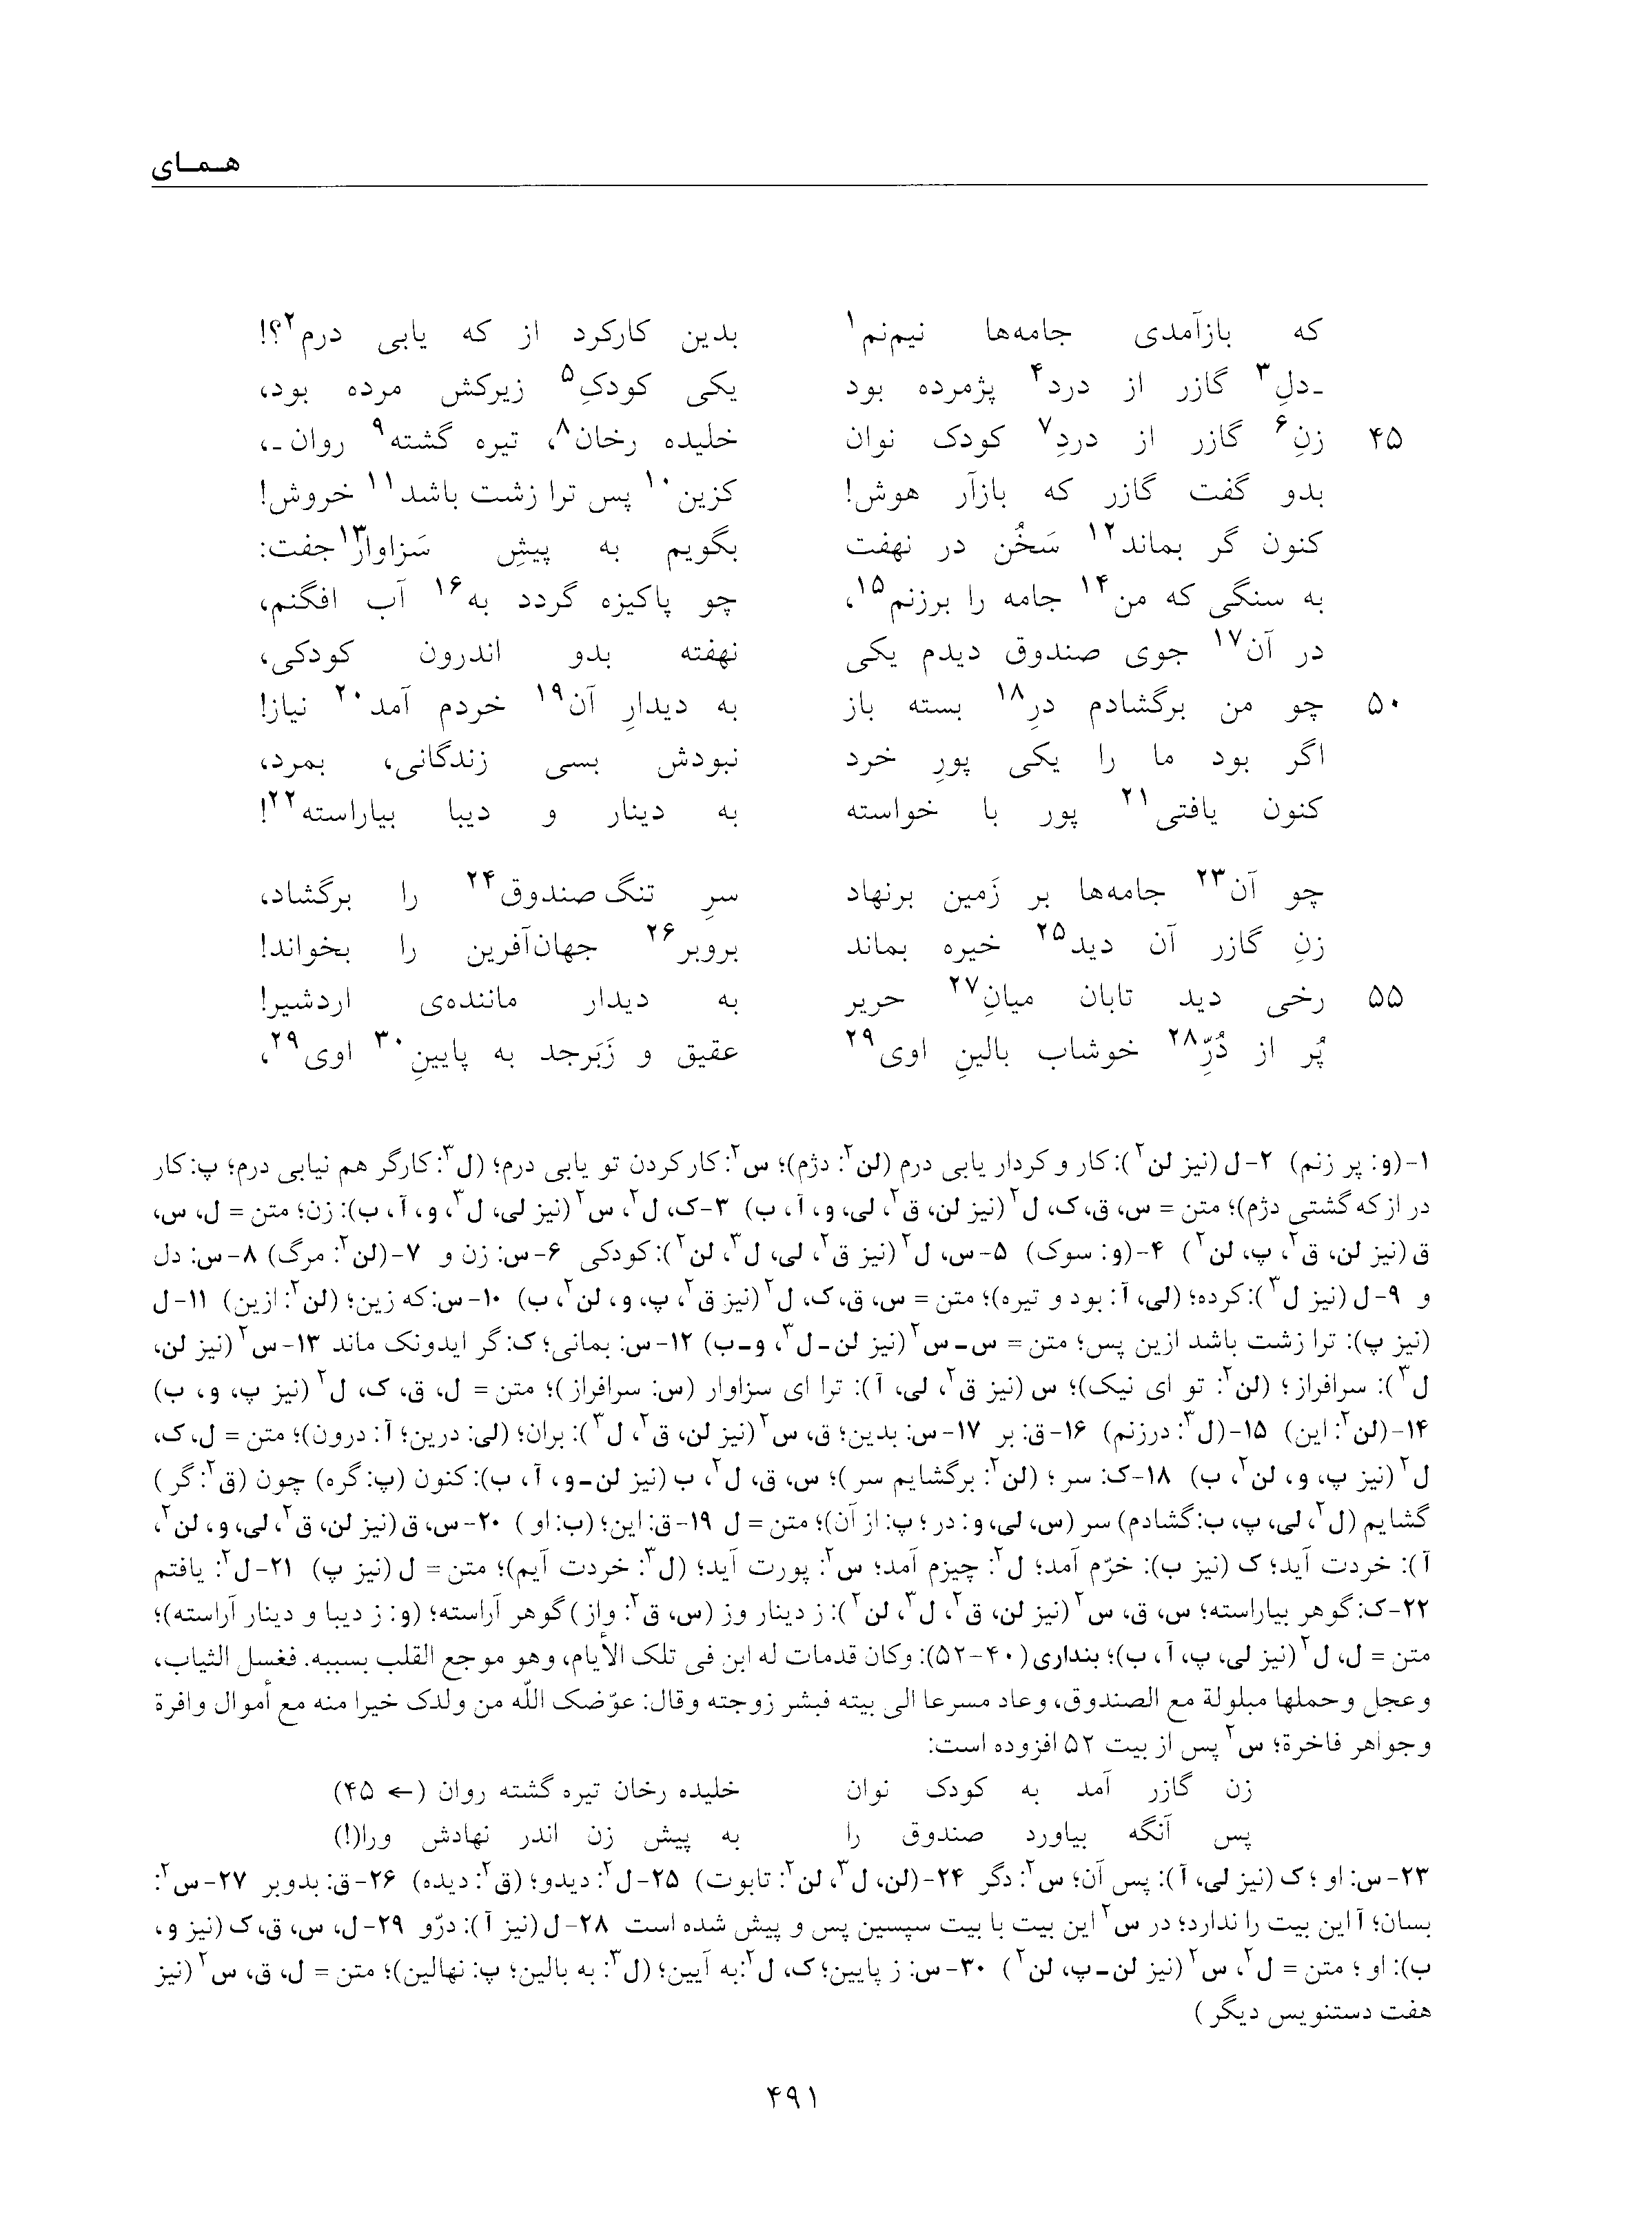 هـمـای
که بازآمدی جامه‌ها نیم‌نم¹ بدین کارکرد از که یابی درم²؟!
ـ‌دلِ³ گازر از درد⁴ پژمرده بود یکی کودکِ⁵ زیرکش مرده بود،
۴۵ زنِ⁶ گازر از دردِ⁷ کودک نوان خلیده رخان⁸، تیره گشته⁹ روان‌ـ،
بدو گفت گازر که بازآر هوش! کزین¹⁰ پس ترا زشت باشد¹¹ خروش!
کنون گر بماند¹² سَخُن در نهفت بگویم به پیشِ سَزاوار¹³ جفت:
به سنگی که من¹⁴ جامه را برزنم¹⁵، چو پاکیزه گردد به¹⁶ آب افگنم،
در آن¹⁷ جوی صندوق دیدم یکی نهفته بدو اندرون کودکی،
۵۰ چو من برگشادم درِ¹⁸ بسته باز به دیدارِ آن¹⁹ خردم آمد²⁰ نیاز!
اگر بود ما را یکی پورِ خرد نبودش بسی زندگانی، بمرد،
کنون یافتی²¹ پور با خواسته به دینار و دیبا بیاراسته²²!
چو آن²³ جامه‌ها بر زَمین برنهاد سرِ تنگ صندوق²⁴ را برگشاد،
زنِ گازر آن دید²⁵ خیره بماند بروبر²⁶ جهان‌آفرین را بخواند!
۵۵ رخی دید تابان میانِ²⁷ حریر به دیدار ماننده‌ی اردشیر!
پُر از دُرِّ²⁸ خوشاب بالینِ اوی²⁹ عقیق و زَبَرجد به پایینِ³⁰ اوی²⁹،
۱-(و: پر زنم) ۲-ل (نیز لن²): کار و کردار یابی درم (لن²: دژم)؛ س²: کار کردن تو یابی درم؛ (ل³: کارگر هم نیابی درم؛ پ: کار
در از که گشتی دژم)؛ متن = س، ق، ک، ل² (نیز لن، ق²، لی، و، آ، ب) ۳-ک، ل²، س² (نیز لی، ل³، و، آ، ب): زن؛ متن = ل، س،
ق (نیز لن، ق²، پ، لن²) ۴-(و: سوک) ۵-س، ل² (نیز ق²، لی، ل³، لن²): کودکی ۶-س: زن و ۷-(لن²: مرگ) ۸-س: دل
و ۹-ل (نیز ل³): کرده؛ (لی، آ: بود و تیره)؛ متن = س، ق، ک، ل² (نیز ق²، پ، و، لن²، ب) ۱۰-س: که زین؛ (لن²: ازین) ۱۱-ل
(نیز پ): ترا زشت باشد ازین پس؛ متن = س-س² (نیز لن-ل³، و-ب) ۱۲-س: بمانی؛ ک: گر ایدونک ماند ۱۳-س² (نیز لن،
ل³): سرافراز؛ (لن²: تو ای نیک)؛ س (نیز ق²، لی، آ): ترا ای سزاوار (س: سرافراز)؛ متن = ل، ق، ک، ل² (نیز پ، و، ب)
۱۴-(لن²: این) ۱۵-(ل³: درزنم) ۱۶-ق: بر ۱۷-س: بدین؛ ق، س² (نیز لن، ق²، ل³): بران؛ (لی: درین؛ آ: درون)؛ متن = ل، ک،
ل² (نیز پ، و، لن²، ب) ۱۸-ک: سر؛ (لن²: برگشایم سر)؛ س، ق، ل²، ب (نیز لن-و، آ، ب): کنون (پ: گره) چون (ق²: گر)
گشایم (ل²، لی، پ، ب: گشادم) سر (س، لی، و: در؛ پ: از آن)؛ متن = ل ۱۹-ق: این؛ (ب: او) ۲۰-س، ق (نیز لن، ق²، لی، و، لن²،
آ): خردت آید؛ ک (نیز ب): خرّم آمد؛ ل²: چیزم آمد؛ س²: پورت آید؛ (ل³: خردت آیم)؛ متن = ل (نیز پ) ۲۱-ل²: یافتم
۲۲-ک: گوهر بیاراسته؛ س، ق، س² (نیز لن، ق²، ل³، لن²): ز دینار وز (س، ق²: واز) گوهر آراسته؛ (و: ز دیبا و دینار آراسته)؛
متن = ل، ل² (نیز لی، پ، آ، ب)؛ بنداری (۴۰-۵۲): وکان قدمات له ابن فی تلک الأیام، وهو موجع القلب بسببه. فغسل الثیاب،
وعجل وحملها مبلولة مع الصندوق، وعاد مسرعا الی بیته فبشر زوجته وقال: عوّضک اللّه من ولدک خیرا منه مع أموال وافرة
وجواهر فاخرة؛ س² پس از بیت ۵۲ افزوده است:
زن گازر آمد به کودک نوان خلیده رخان تیره گشته روان (← ۴۵)
پس آنگه بیاورد صندوق را به پیش زن اندر نهادش ورا(!)
۲۳-س: او؛ ک (نیز لی، آ): پس آن؛ س²: دگر ۲۴-(لن، ل³، لن²: تابوت) ۲۵-ل²: دیدو؛ (ق²: دیده) ۲۶-ق: بدوبر ۲۷-س²:
بسان؛ آ این بیت را ندارد؛ در س² این بیت با بیت سپسین پس و پیش شده است ۲۸-ل (نیز آ): درّو ۲۹-ل، س، ق، ک (نیز و،
ب): او؛ متن = ل²، س² (نیز لن-پ، لن²) ۳۰-س: ز پایین؛ ک، ل²: به آیین؛ (ل³: به بالین؛ پ: نهالین)؛ متن = ل، ق، س² (نیز
هفت دستنویس دیگر)
۴۹۱